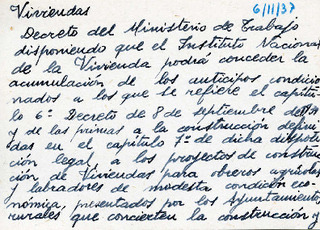 Viviendas
6/11/37
Decreto del Ministerio de Trabajo
disponiendo que el Instituto Nacional
de la Vivienda podrá conceder la
acumulación de los anticipos condicio
nados a los que se refiere el capítu-
lo 6º Decreto de 8 de septiembre de
y de las primas a la construcción defini
das en el capítulo 7º de dicha disposi
ción legal, a los proyectos de construc
ción de Viviendas para obreros agrícolas
y labradores de modesta condición eco-
nómica, presentados por los Ayuntamientos
rurales que concierten la construcción y